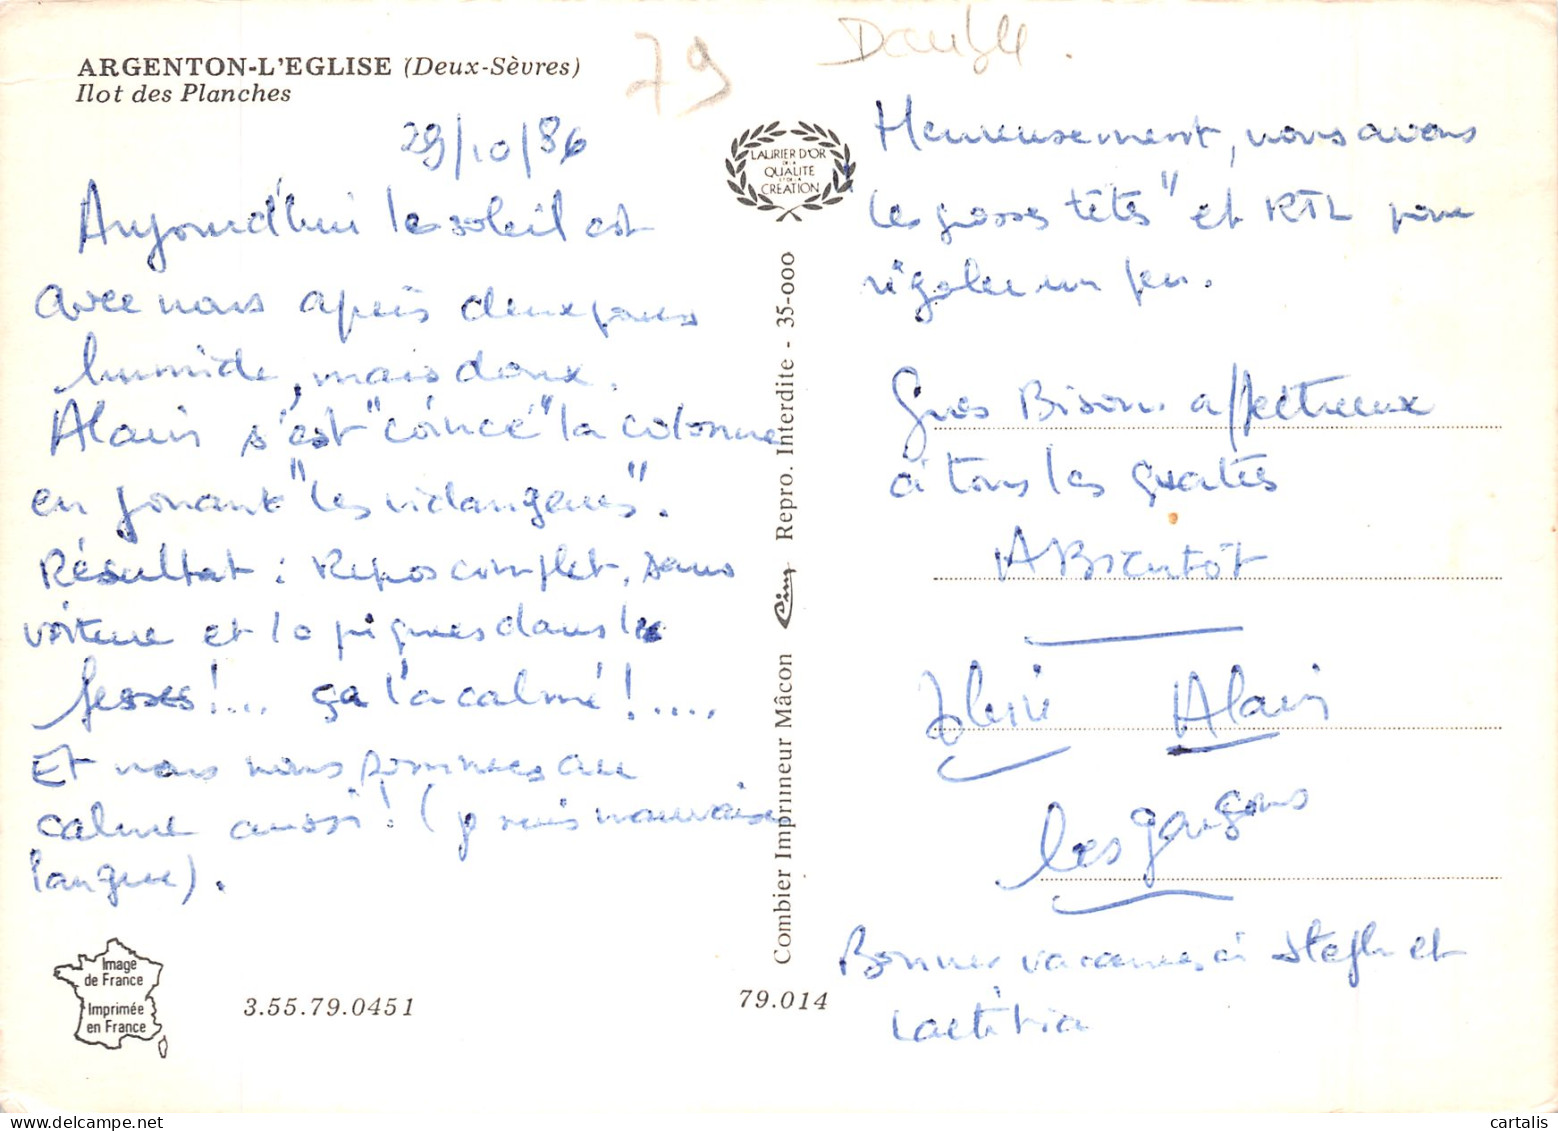 ARGENTON-L'EGLISE (Deux-Sèvres)
Ilot des Planches
79
Double.
29/10/86
Aujourd'hui le soleil est
avec nous après deux jours
humide, mais doux.
Alain s'est "coincé" la colonne
en jouant "les vidangeurs".
Résultat : Repos complet, sans
voiture et 10 piqures dans les
fesses!... ça l'a calmé!....
Et nous nous sommes au
calme aussi! (je suis mauvaise
langue).
LAURIER D'OR
DE LA
QUALITE
ET DE LA
CREATION
Combier Imprimeur Mâcon Cim Repro. Interdite - 35-000
Heureusement, nous avons
"les grosses têtes" et RTL pour
rigoler un peu.
Gros Bisous affectueux
à tous les quatres
A Bientôt
Alain
les garçons
Bonnes vacances à Steph et
Laetitia
Image
de France
Imprimée
en France
3.55.79.0451
79.014
cartalis